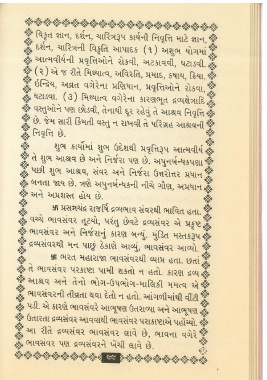 વિકૃત જ્ઞાન, દર્શન, ચારિત્રરૂપ કાર્યની નિવૃત્તિ માટે જ્ઞાન,
દર્શન, ચારિત્રની વિકૃતિ આપાદક (૧) અશુભ યોગમાં
આત્મવીર્યની પ્રવૃત્તિઓને રોકવી, અટકાવવી, ઘટાડવી.
(૨) એ જ રીતે મિથ્યાત્વ, અવિરતિ, પ્રમાદ, કષાય, ક્રિયા,
ઈન્દ્રિય, અવ્રત વગેરેના પ્રણિધાન, પ્રવૃત્તિઓને રોકવા,
ઘટાડવા. (૩) મિથ્યાત્વ વગેરેના કારણભૂત દ્રવ્યક્ષેત્રાદિ
વસ્તુઓને પણ છોડવી, તેનાથી દૂર રહેવું તે આશ્રવ નિવૃત્તિ
છે. જેમ સારી કિંમતી વસ્તુ ન રાખવી તે પરિગ્રહ આશ્રવની
નિવૃત્તિ છે.
શુભ કાર્યોમાં શુભ ઉદ્દેશથી પ્રવૃત્તિરૂપ આત્મવીર્ય
તે શુભ આશ્રવ છે અને નિર્જરા પણ છે. અપુનર્બન્ધકપણા
પછી શુભ આશ્રવ, સંવર અને નિર્જરા ઉત્તરોત્તર પ્રધાન
બનતા જાય છે. ત્રણે અપુનર્બન્ધકની નીચે ગૌણ, અપ્રધાન
અને અપ્રશસ્ત હોય છે.
પ્રસન્નચંદ્ર રાજર્ષિ દ્રવ્યભાવ સંવરથી ભાવિત હતા.
વચ્ચે ભાવસંવર તૂટયો, પરંતુ છેવટે દ્રવ્યસંવર એ પ્રકૃષ્ટ
ભાવસંવર અને નિર્જરાનું કારણ બન્યું. મુંડિત મસ્તકરૂપ
દ્રવ્યસંવરથી મન પાછું ઠેકાણે આવ્યું, ભાવસંવર આવ્યો.
ભરત મહારાજા ભાવસંવરથી વ્યાપ્ત હતા. છતાં
તે ભાવસંવર પરકાષ્ઠા પામી શકતો ન હતો. કારણ દ્રવ્ય
આશ્રવ અને તેનો ભોગ-ઉપભોગ-માલિકી મમત્વ એ
ભાવસંવરની તીવ્રતા થવા દેતો ન હતો. આંગળીમાંથી વીંટી
પડી. એ કારણે ભાવસંવરે આભૂષણ ઉતરાવ્યા અને આભૂષણ
ઉતારતા દ્રવ્યસંવર આવવાથી ભાવસંવર પરાકાષ્ઠાએ પહોંચ્યો.
આ રીતે દ્રવ્યસંવર ભાવસંવર લાવે છે, ભાવના વગેરે
ભાવસંવર પણ દ્રવ્યસંવરને ખેંચી લાવે છે.